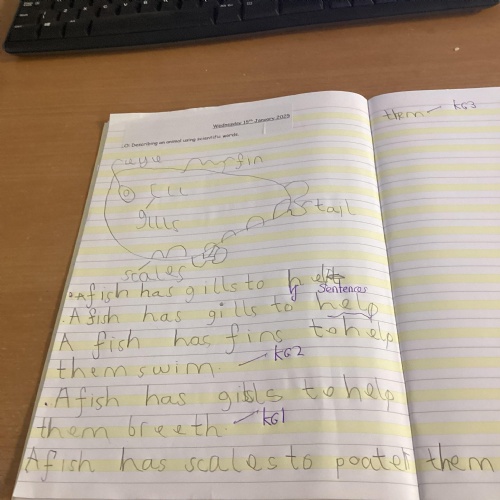 Wednesday 15th January 2025
LO: Describing an animal using scientific words.
fin
gills
tail
scales
A fish has gills to help
y Sentences
A fish has gills to help
A fish has fins to help
them swim. KG2
A fish has gills to help
them breeth. KG1
A fish has scales to poater them
them KG3